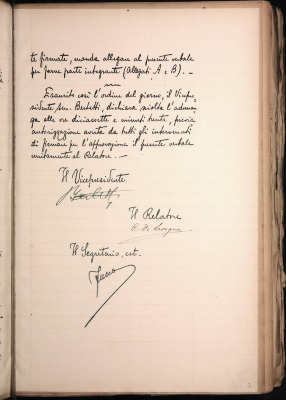 te firmate, manda allegare al presente verbale
per farne parte integrante (Allegati A e B). —
Esaurito così l'ordine del giorno, il Vicepre-
sidente sen. Berlotti, dichiara sciolta l'adunan-
za alle ore diciassette e minuti trenta, previa
autorizzazione avuta da tutti gli intervenuti
di firmare per l'approvazione il presente verbale
unitamente al Relatore. —
Il Vicepresidente
Il Relatore
C. di
Il Segretario, est.